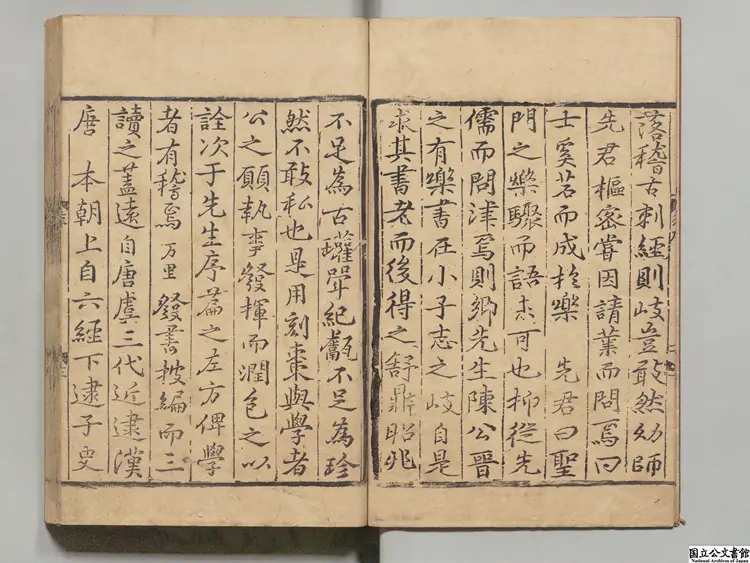 落稽古刺經則岐豈敢然幼師
先君樞密嘗因請業而問焉曰
士奚若而成於樂 先君曰聖
門之樂驟而語未可也抑從先
儒而問津焉則鄉先生陳公晉
之有樂書在小子志之岐自是
求其書老而後得之舒鼎昭兆
不足為古瓘斝紀甗不足為珍
然不敢私也是用刻棗與學者
公之願執事發揮而潤色之以
詮次于先生序篇之左方俾學
者有稽焉万里 發書披編而三
讀之蓋遠自唐虞三代近逮漢
唐 本朝上自六經下逮子史
国立公文書館
National Archives of Japan